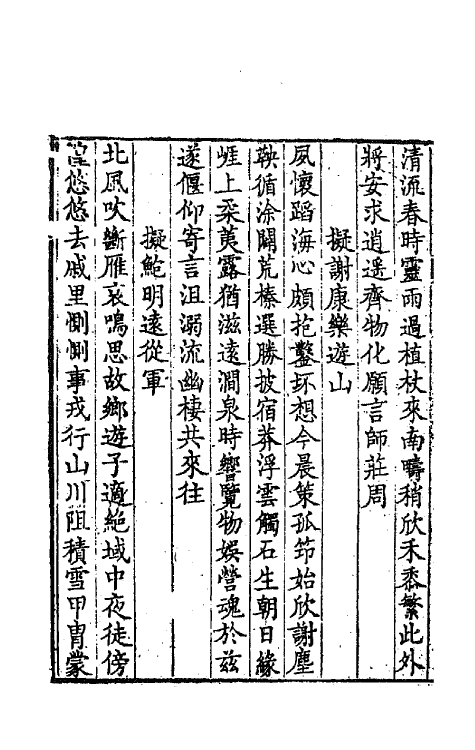 清流春時靈雨過植杖來南疇稍欣禾黍繁此外
將安求逍遥齊物化願言師莊周
擬謝康樂遊山
夙懷蹈海心頗抱鑿坏想今晨策孤筇始欣謝塵
鞅循涂闢荒榛選勝披宿莽浮雲觸石生朝日緣
崕上采蕢露猶滋遠澗泉時響覽物娱營魂於兹
遂偃仰寄言沮溺流幽棲共來往
擬鮑明遠從軍
北風吹斷雁哀鳴思故鄉遊子適絶域中夜徒傍
偟悠悠去戚里惻惻事戎行山川阻積雪甲胄蒙